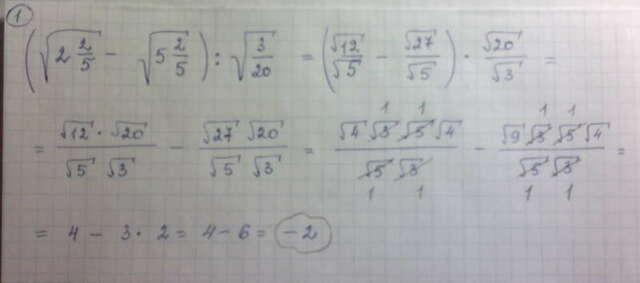 1
(√(2 2/5) − √(5 2/5)) : √(3/20) = (√12/√5 − √27/√5) · √20/√3 =
= (√12 · √20)/(√5 √3) − (√27 √20)/(√5 √3) = (√4 √3 √5 √4)/(√5 √3) − (√9 √3 √5 √4)/(√5 √3) =
= 4 − 3 · 2 = 4 − 6 = −2